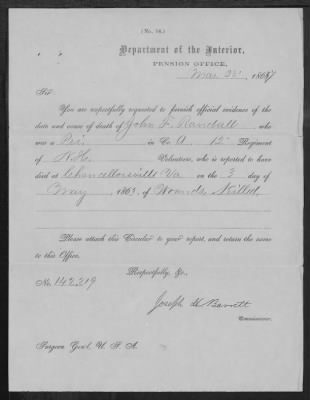 (No. 14.)
Department of the Interior,
PENSION OFFICE,
Mar 28" 1867
Sir
You are respectfully requested to furnish official evidence of the
date and cause of death of John F. Randall who
was a Pri in Co A. 12" Regiment
of N.H. Volunteers, who is reported to have
died at Chancellorsville Va on the 3 day of
May 1863, of Wounds Killed.
Please attach this Circular to your report, and return the same
to this Office.
Respectfully, &c.,
No. 142219
Joseph H Barrett
Commissioner.
Surgeon Genl, U. S. A.